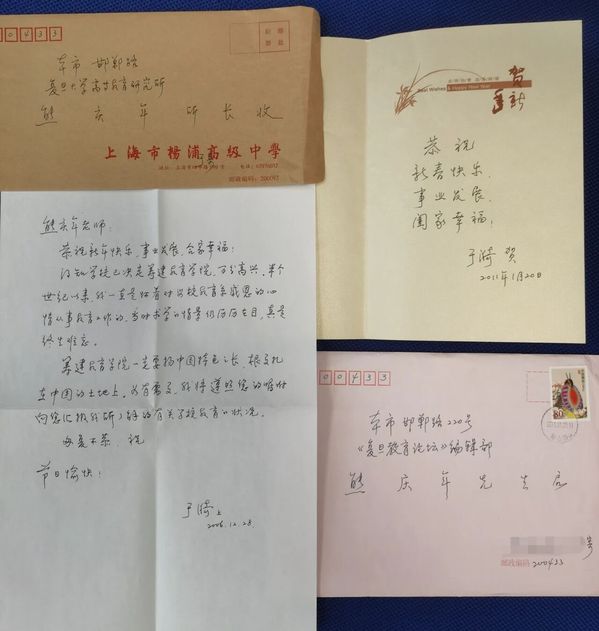 200433
本市 邯郸路
复旦大学高等教育研究所
熊 庆 年 所 长 收
上海市杨浦高级中学
于漪
邮政编码：200092
熊庆年老师：
恭祝新年快乐，事业发展，合家幸福！
得知学校已决定筹建教育学院，万分高兴。半个
世纪以来，我一直是怀着对母校教育系感恩的心
情从事教育工作的，当时求学的情景仍历历在目，真是
终生难忘。
筹建教育学院一定要扬中国特色之长，根子扎
在中国的土地上。如有需要，我将遵照您的嘱咐
向您汇报我所了解的有关学校教育的状况。
匆复不恭，祝
节日愉快！
于漪上
2006.12.28.
恭贺新禧
Best Wishes & Happy New Year
贺新年
恭祝
新春快乐，
事业发展，
阖家幸福！
于漪 贺
2011年1月20日
200433
80
本市 邯郸路220号
《复旦教育论坛》编辑部
熊 庆 年 先 生 启
号
邮政编码 200433